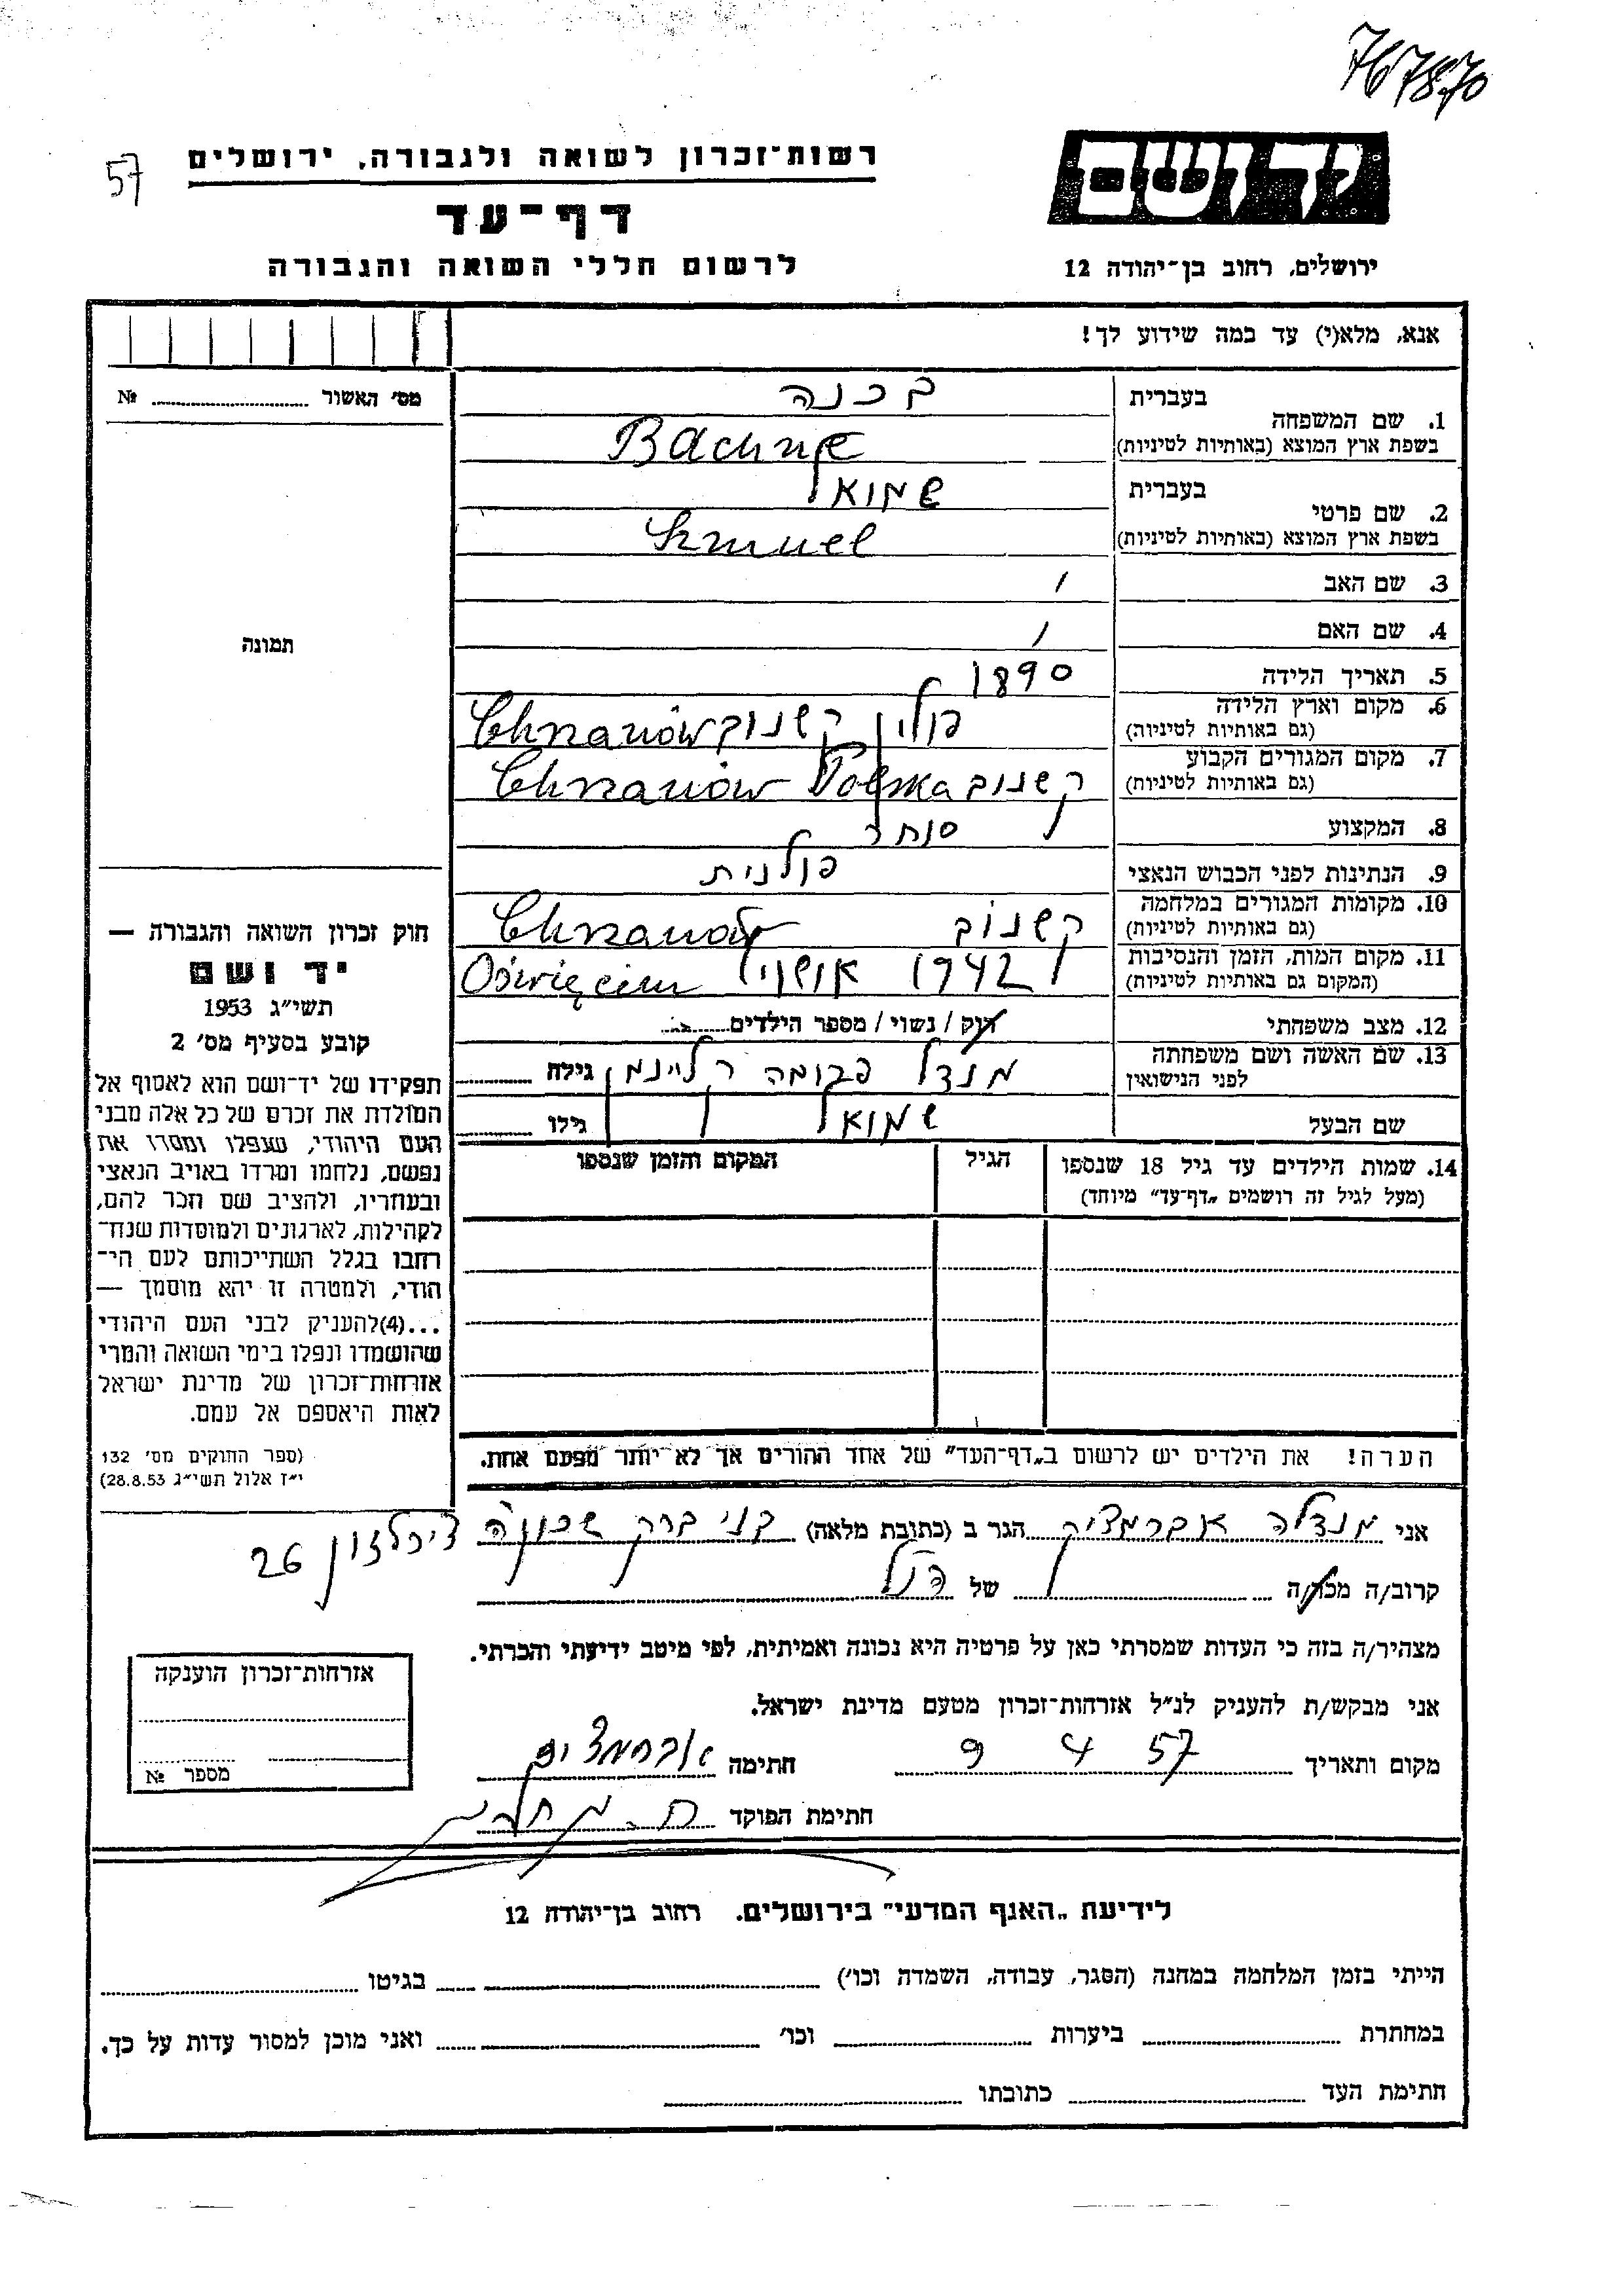 767870
57
יד ושם
רשות־זכרון לשואה ולגבורה, ירושלים
דף־עד
לרשום חללי השואה והגבורה
ירושלים, רחוב בן־יהודה 12
אנא, מלא(י) עד כמה שידוע לך!
מס' האשור № 
תמונה
בעברית בכנה
1. שם המשפחה
בשפת ארץ המוצא (באותיות לטיניות) Bachne
בעברית שמואל
2. שם פרטי
בשפת ארץ המוצא (באותיות לטיניות) Szmuel
3. שם האב /
4. שם האם /
5. תאריך הלידה 1890
6. מקום וארץ הלידה
(גם באותיות לטיניות) פולין קשנוב Chrzanów
7. מקום המגורים הקבוע
(גם באותיות לטיניות) קשנוב Chrzanów Polska
8. המקצוע סוחר
9. הנתינות לפני הכבוש הנאצי פולנית
10. מקומות המגורים במלחמה
(גם באותיות לטיניות) קשנוב Chrzanów
11. מקום המות, הזמן והנסיבות
(המקום גם באותיות לטיניות) 1942 Oświęcim
12. מצב משפחתי רוק / נשוי / מספר הילדים
13. שם האשה ושם משפחתה
לפני הנישואין מנדל קליינמן גילה
שם הבעל שמואל גילו
14. שמות הילדים עד גיל 18 שנספו הגיל המקום והזמן שנספו
(מעל לגיל זה רושמים „דף־עד” מיוחד)
הערה! את הילדים יש לרשום ב„דף־העד” של אחד ההורים אך לא יותר מפעם אחת.
חוק זכרון השואה והגבורה —
יד ושם
תשי״ג 1953
קובע בסעיף מס' 2
תפקידו של יד־ושם הוא לאסוף אל
המולדת את זכרם של כל אלה מבני
העם היהודי, שנפלו ומסרו את
נפשם, נלחמו ומרדו באויב הנאצי
ובעוזריו, ולהציב שם וזכר להם,
לקהילות, לארגונים ולמוסדות שנח־
רחבו בגלל השתייכותם לעם הי־
הודי, ולמטרה זו יהא מוסמך —
...(4) להעניק לבני העם היהודי
שהושמדו ונפלו בימי השואה והמרי
אזרחות־זכרון של מדינת ישראל
לאות היאספם אל עמם.
(ספר החוקים מס' 132
י״ז אלול תשי״ג 28.8.53)
אני מנדלה אברמציק הגר ב (כתובת מלאה) בני ברק שכונה 26
קרוב/ה מכר/ה של הנ״ל
מצהיר/ה בזה כי העדות שמסרתי כאן על פרטיה היא נכונה ואמיתית, לפי מיטב ידיעתי והכרתי.
אני מבקש/ת להעניק לנ״ל אזרחות־זכרון מטעם מדינת ישראל.
מקום ותאריך 9 4 57 חתימה אברמציק
חתימת הפוקד
אזרחות־זכרון הוענקה
מספר №
לידיעת „האגף המדעי” בירושלים. רחוב בן־יהודה 12
הייתי בזמן המלחמה במחנה (הסגר, עבודה, השמדה וכו') בגיטו
במחתרת ביערות וכו' ואני מוכן למסור עדות על כך.
חתימת העד כתובתו